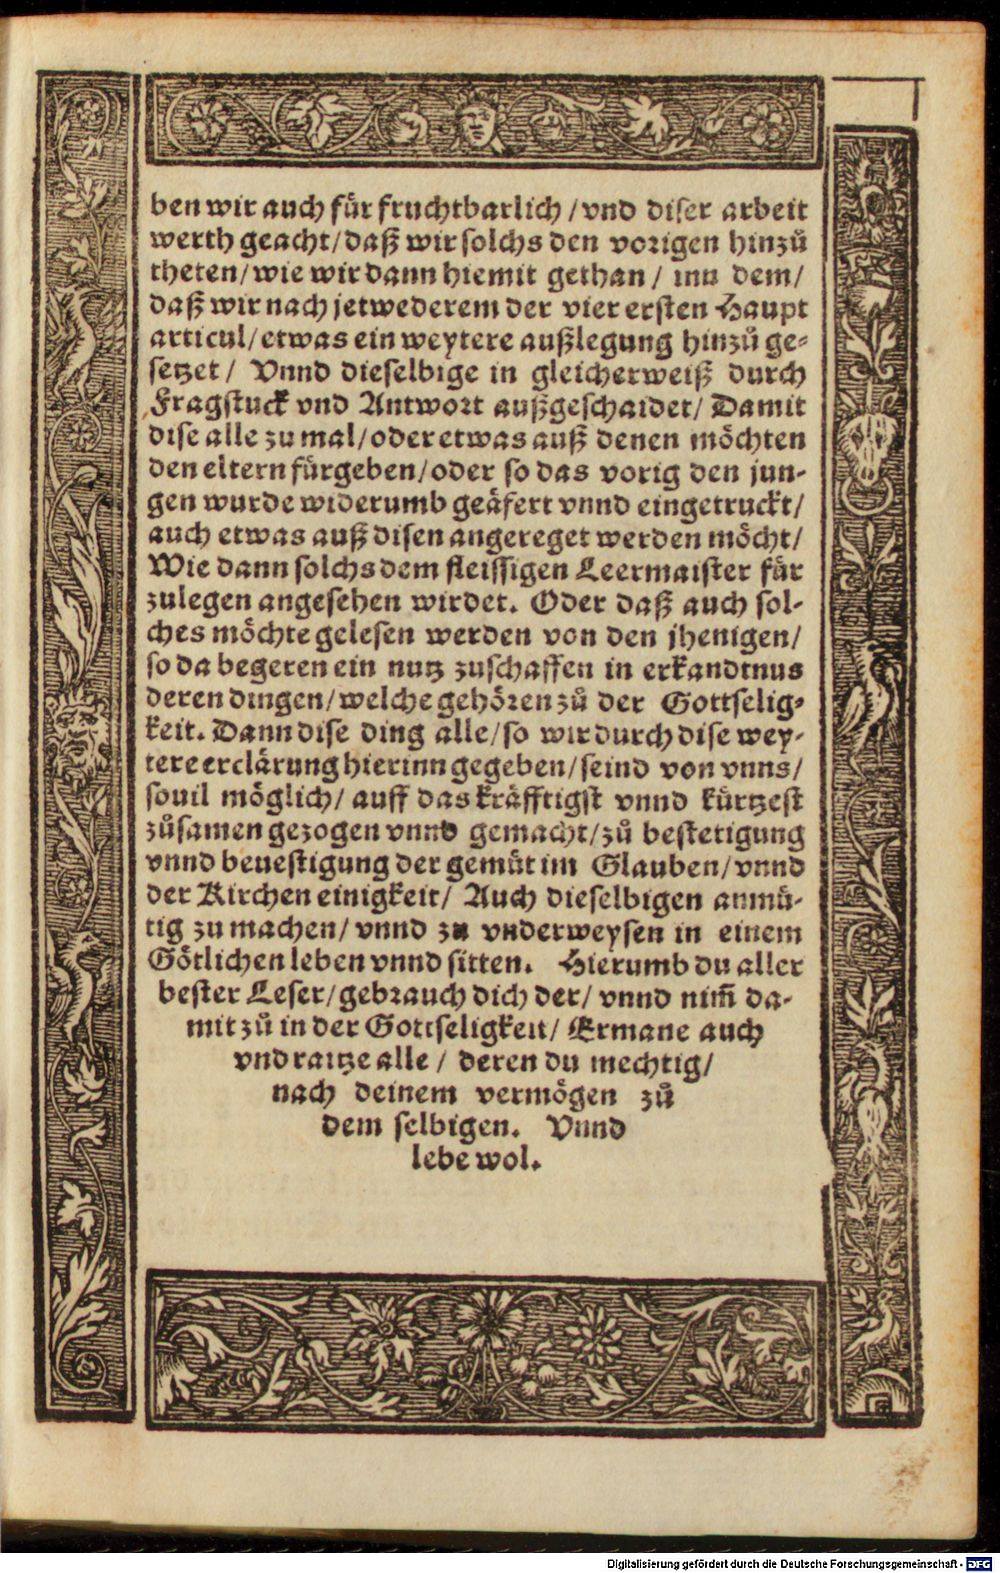 ben wir auch für fruchtbarlich / vnd diser arbeit
werth geacht / daß wir solchs den vorigen hinzů
theten / wie wir dann hiemit gethan / inn dem /
daß wir nach jetwederem der vier ersten Haupt
articul / etwas ein weytere außlegung hinzů ge-
setzet / Vnnd dieselbige in gleicherweiß durch
Fragstuck vnd Antwort außgeschaidet / Damit
dise alle zu mal / oder etwas auß denen möchten
den eltern fürgeben / oder so das vorig den jun-
gen wurde widerumb geäfert vnnd eingetruckt /
auch etwas auß disen angereget werden möcht /
Wie dann solchs dem fleissigen Leermaister für
zulegen angesehen wirdet. Oder daß auch sol-
ches möchte gelesen werden von den jhenigen /
so da begeren ein nutz zuschaffen in erkandtnus
deren dingen / welche gehören zů der Gottselig-
keit. Dann dise ding alle / so wir durch dise wey-
tere erclärung hierinn gegeben / seind von vnns /
souil möglich / auff das kräfftigst vnnd kürtzest
zůsamen gezogen vnnd gemacht / zů bestetigung
vnnd beuestigung der gemüt im Glauben / vnnd
der Kirchen einigkeit / Auch dieselbigen anmü-
tig zu machen / vnnd zu vnderweysen in einem
Götlichen leben vnnd sitten. Hierumb du aller
bester Leser / gebrauch dich der / vnnd nim̃ da-
mit zů in der Gottseligkeit / Ermane auch
vnd raitze alle / deren du mechtig /
nach deinem vermögen zů
dem selbigen. Vnnd
lebe wol.
Digitalisierung gefördert durch die Deutsche Forschungsgemeinschaft - DFG